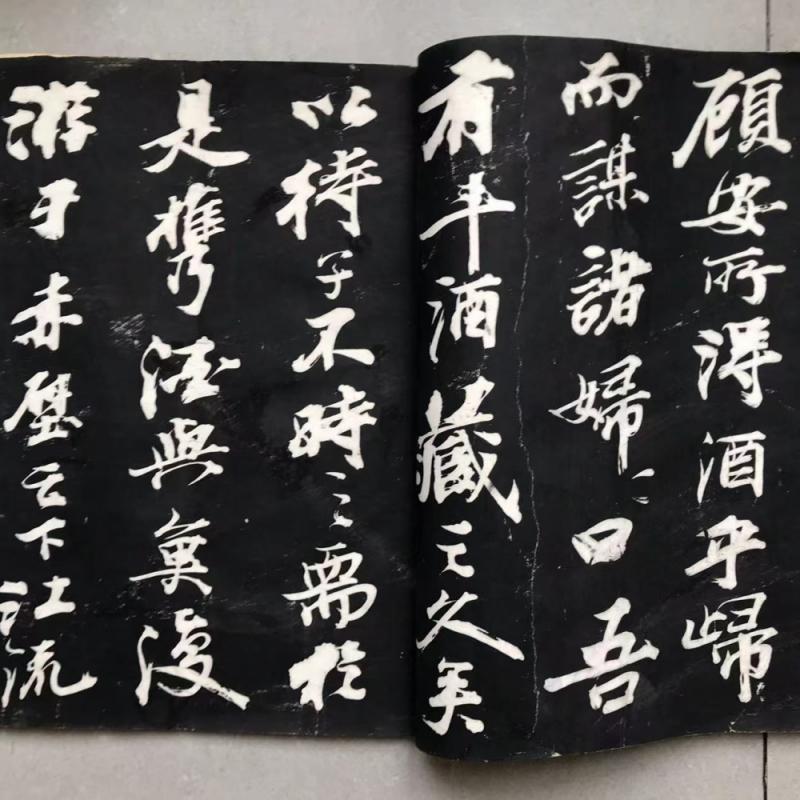 顧安所得酒乎歸
而謀諸婦〻曰吾
有斗酒藏之久矣
以待子不時之需於
是携酒與魚復
游于赤壁之下江流